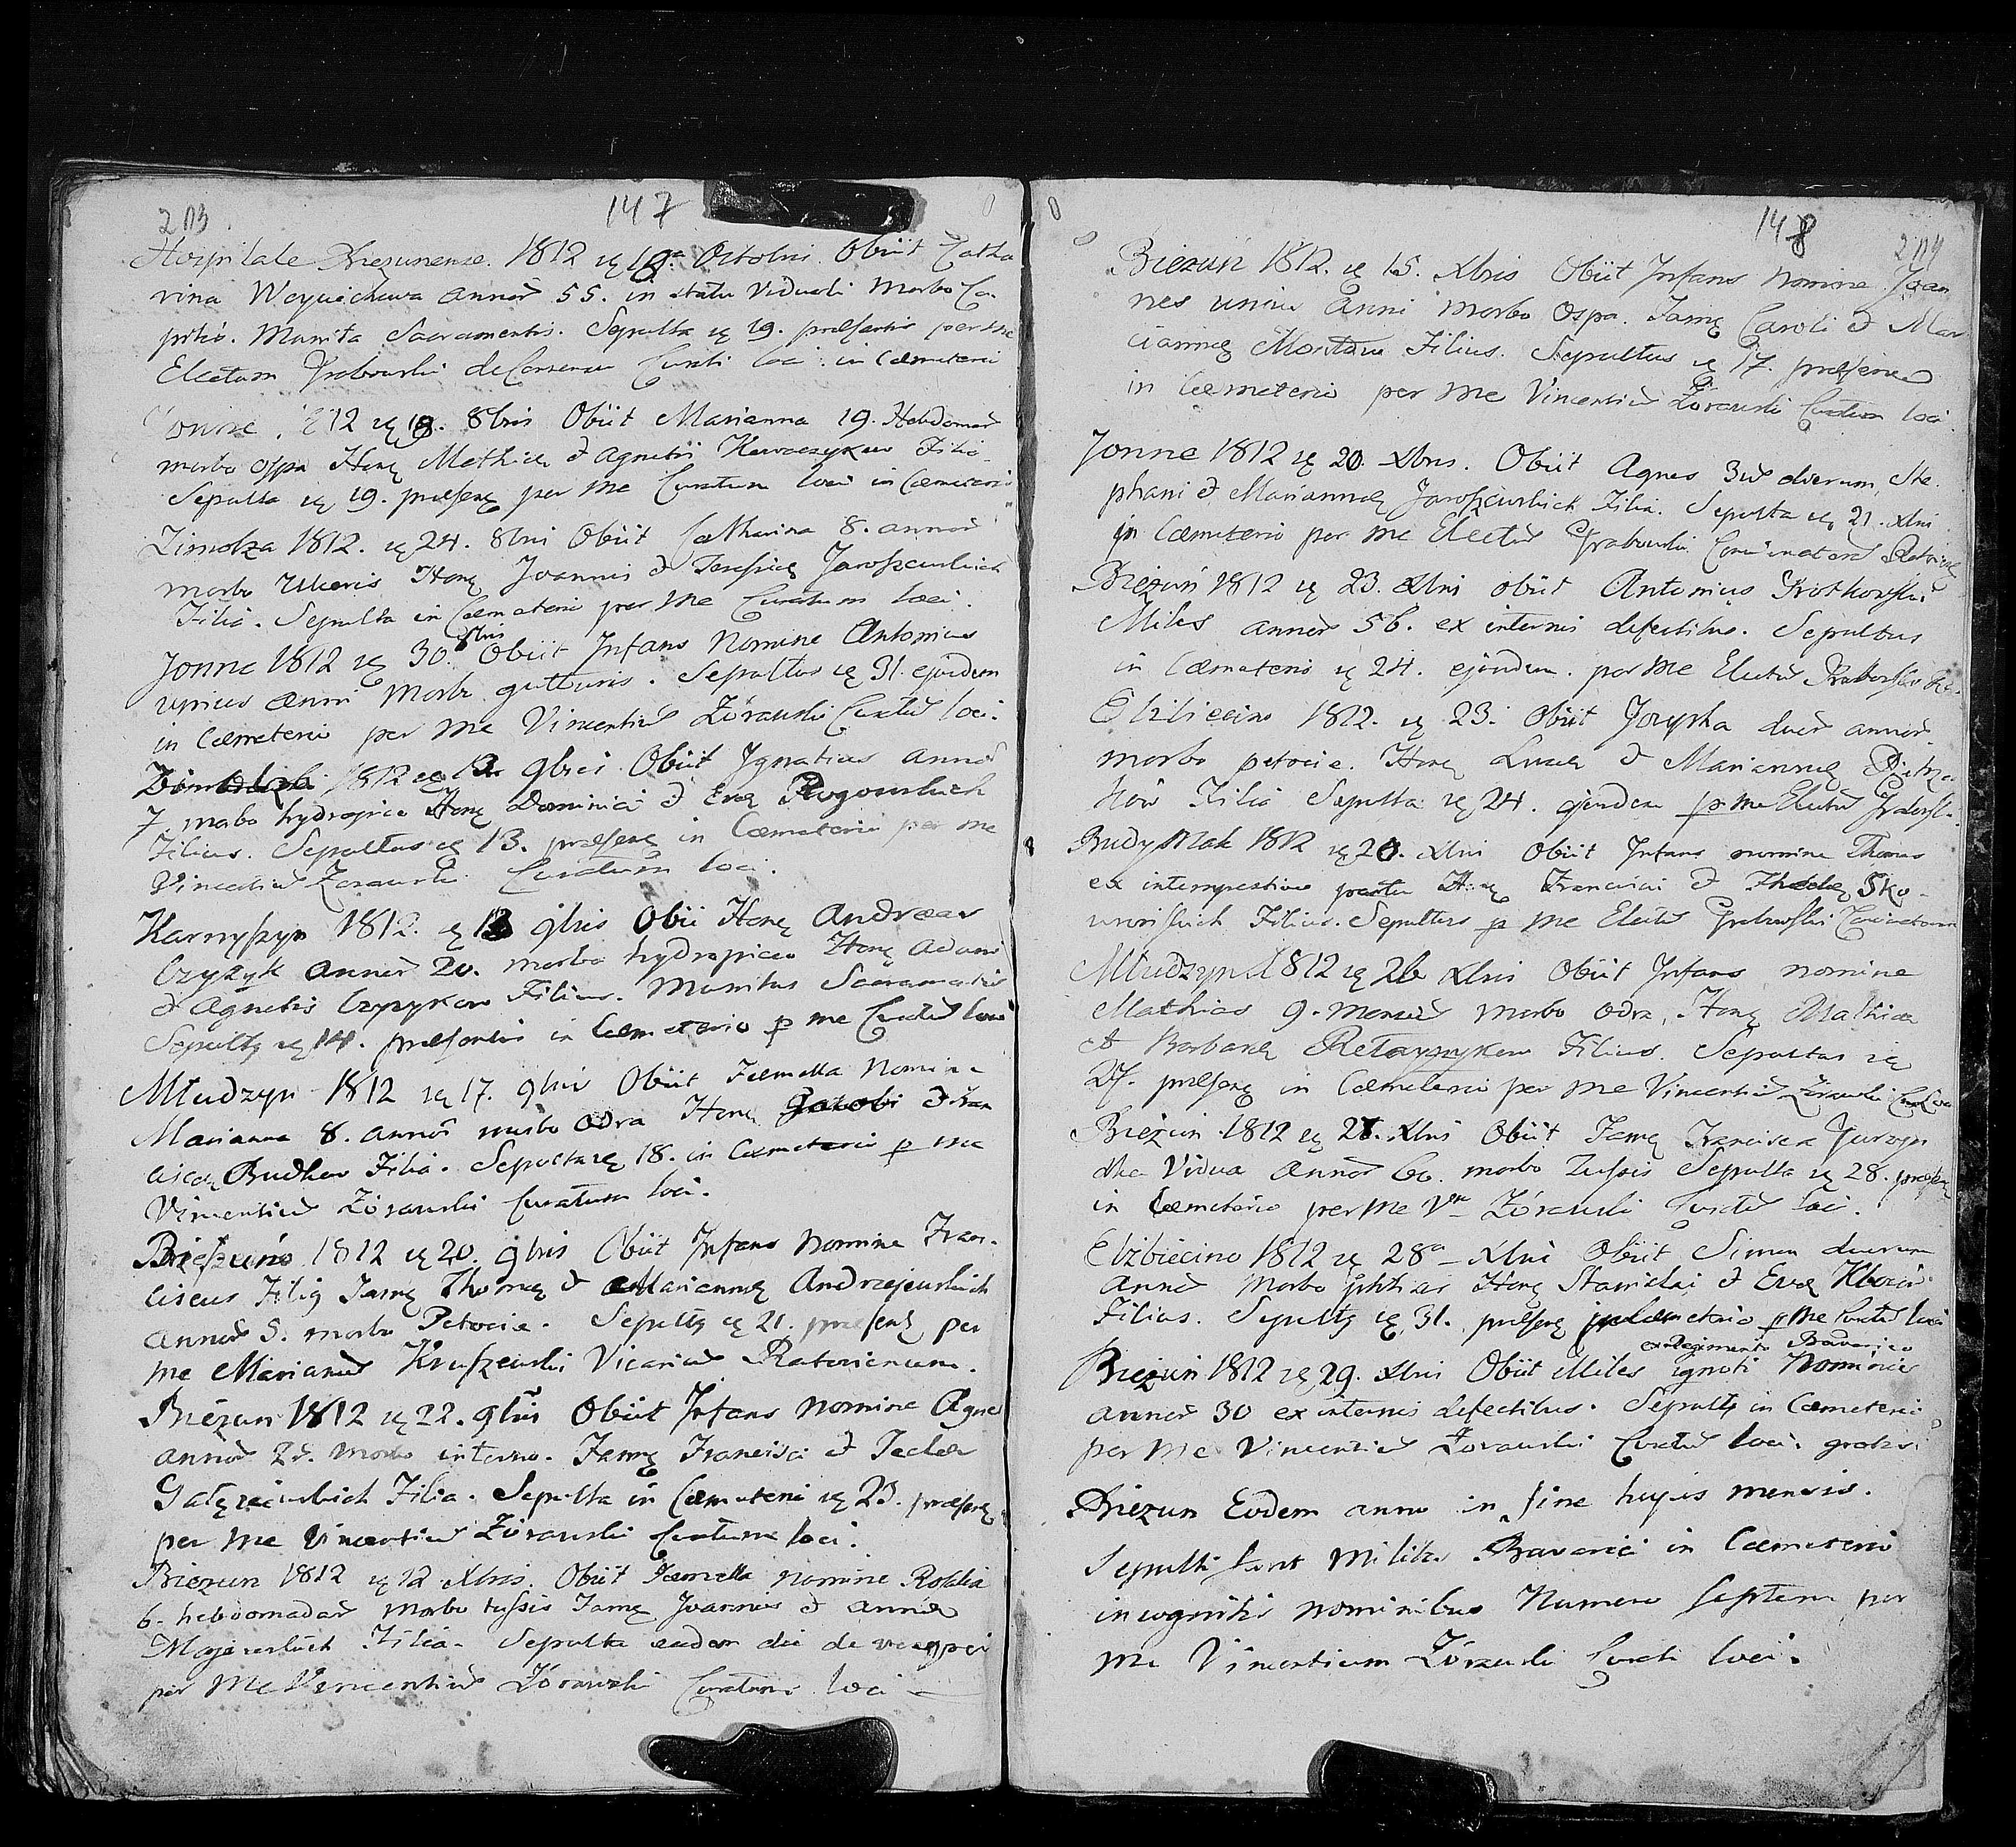 203
147
Hospitale Biezunense. 1812 ię 18a Octobris. Obiit Catha
rina Woyciechowa annor 55. in statu Viduali Morbo Ca-
pitis. Munita Sacramentis. Sepulta ię 19. praesentis per me
Electum Grabowski de Consensu Curati loci in Caemeterio
Jonne. 1812 ię 18. 8bris Obiit Marianna 19. Hebdomad
morbo ospa Hone Mathiae et Agnetis Filia
Sepulta ię 19. praesene per me Curatum loci in Caemeterio
Zimolza 1812. ię 24. 8bris Obiit Catharina 8. annor
morbo Ulceris Hone Joannis et Teressiae Jaroszewskich
Filia. Sepulta in Caemeterio per me Curatum loci.
Jonne 1812 ię 30. 8bris Obiit Infans Nomine Antonius
unius anni Morbo gutturis. Sepultus ię 31. ejusdem
in Caemeterio per me Vincentiu Zórawski Curatu loci.
1812 ię 12 9bris Obiit Ignatius annor
7. morbo hydropico Hone Dominici et Evae Rogowskich
Filius. Sepultus ię 13. praesene in Caemeterio per me
Vincentiu Zorawski Curatum loci.
Karnyszyn 1812. ię 13 9bris Obii Hone Andreas
Czyżyk annor 20. morbo hydropico Hone Adami
et Agnetis Czyzykow Filius. Munitus Sacramentis
Sepultg ię 14. praesentis in Caemeterio p me Curatu loci
Młudzyn 1812 ię 17. 9bris Obiit Faemella Nomine
Marianna 8. annor morbo Odra Hone Jacobi et Fran
ciscae Budkow Filia. Sepulta ię 18. in Caemeterio p me
Vincentiu Zórawski Curatum loci.
Bieżuńo 1812 ię 20. 9bris Obiit Infans Nomine Fran-
ciscus Filig Fame Thomae et Mariannae Andrzejewskich
annor 5. morbo Petocie. Sepultg ię 21. praesene per
me Marianu Kruszewski Vicariu Ratovicnum.
Bieżun 1812 ię 22. 9bris Obiit Infans Nomine Agnes
annor 2. Morbo interno. Fame Francisci et Teclae
Gałęziewskich Filia. Sepulta in Caemeterio ię 23. praesene
per me Vincentiu Zórawski Curatum loci.
Biezun 1812 ię 12 Xbris. Obiit Faemella nomine Rosalia
6. hebdomadar Morbo tussis Fame Joannis et Annae
Majewskich Filia. Sepulta eadem die de vesperi
per Me Vincentiu Zórawski Curatum loci
148
204
Biezuń 1812. ię 15. Xbris Obiit Infans Nomine Joan
nes unius Anni morbo Ospa. Fame Caroli et Mar
ciannae Filius. Sepultus ię 17. praesene
in Caemeterio per me Vincentiu Zórawski Curatum loci.
Jonne 1812 ię 20. Xbris. Obiit Agnes dierum, Ste-
phani et Mariannae Jaroszewskich Filia. Sepulta ię 21. Xbris
in Caemeterio per me Electu Grabowski
Bieżuń 1812 ię 23. Xbris obiit Antonius Krotkowski
Miles annor 56. ex internis defectibus. Sepultus
in Caemeterio ię 24. ejusdem. per me Electu Grabowski
Elzbiecino 1812. ię 23. Obiit Jozypha duor annor
morbo petocie. Hone Lucae et Mariannae Pietrza-
ków Filia Sepulta ię 24. ejusdem p me Electu Grabowski
Budy Mak 1812 ię 20. Xbris Obiit Infans nomine Thomas
ex intempestivo partu Hone Francisci et Theclae Sko-
wronskich Filius. Sepultus p me Electu Grabowski
Młudzyn 1812 ię 26 Xbris Obiit Infans nomine
Mathias 9. Mensiu Morbo Odra, Hone Mathiae
et Barbarae Filius. Sepultus ię
27. praesene in Caemeterio per me Vincentiu Zórawski
Bieżun 1812 ię 27. Xbris Obiit Fame Francisca
Vidua annor 60. morbo Tussis Sepulta ię 28. praesene
in Caemeterio per me Vm Zórawski Curatu loci.
Elżbiecino 1812 ię 28a Xbris Obiit Simon duorum
annor Morbo phthisis Hone Stanislai et Evae
Filius. Sepultg ię 31. praesene in Caemeterio p me Curatu loci
ex Regimento Bavarico
Bieżun 1812 ię 29. Xbris Obiit Miles ignoti Nominis
annor 30 ex internis defectibus. Sepultg in Caemeterio
per me Vincentiu Zórawski Curatu loci. gratis
Biezun Eodem anno in fine hujus mensis.
Sepulti sunt Milites Bavarici in Caemeterio
incognitis nominibus Numero Septem per
me Vincentium Zórawski Curati loci.